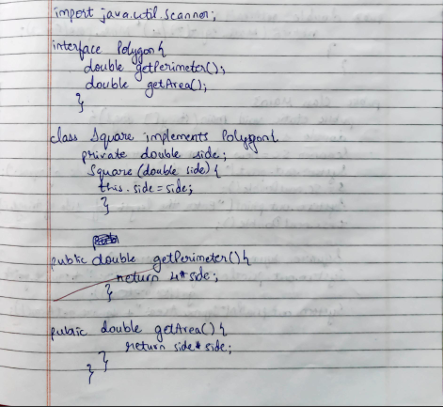 import java.util.scanner;
interface Polygon{
double getPerimeter();
double getArea();
}
class Square implements Polygon{
private double side;
Square (double side) {
this.side = side;
}
public double getPerimeter(){
return 4*side;
}
public double getArea() {
return side * side;
}
}